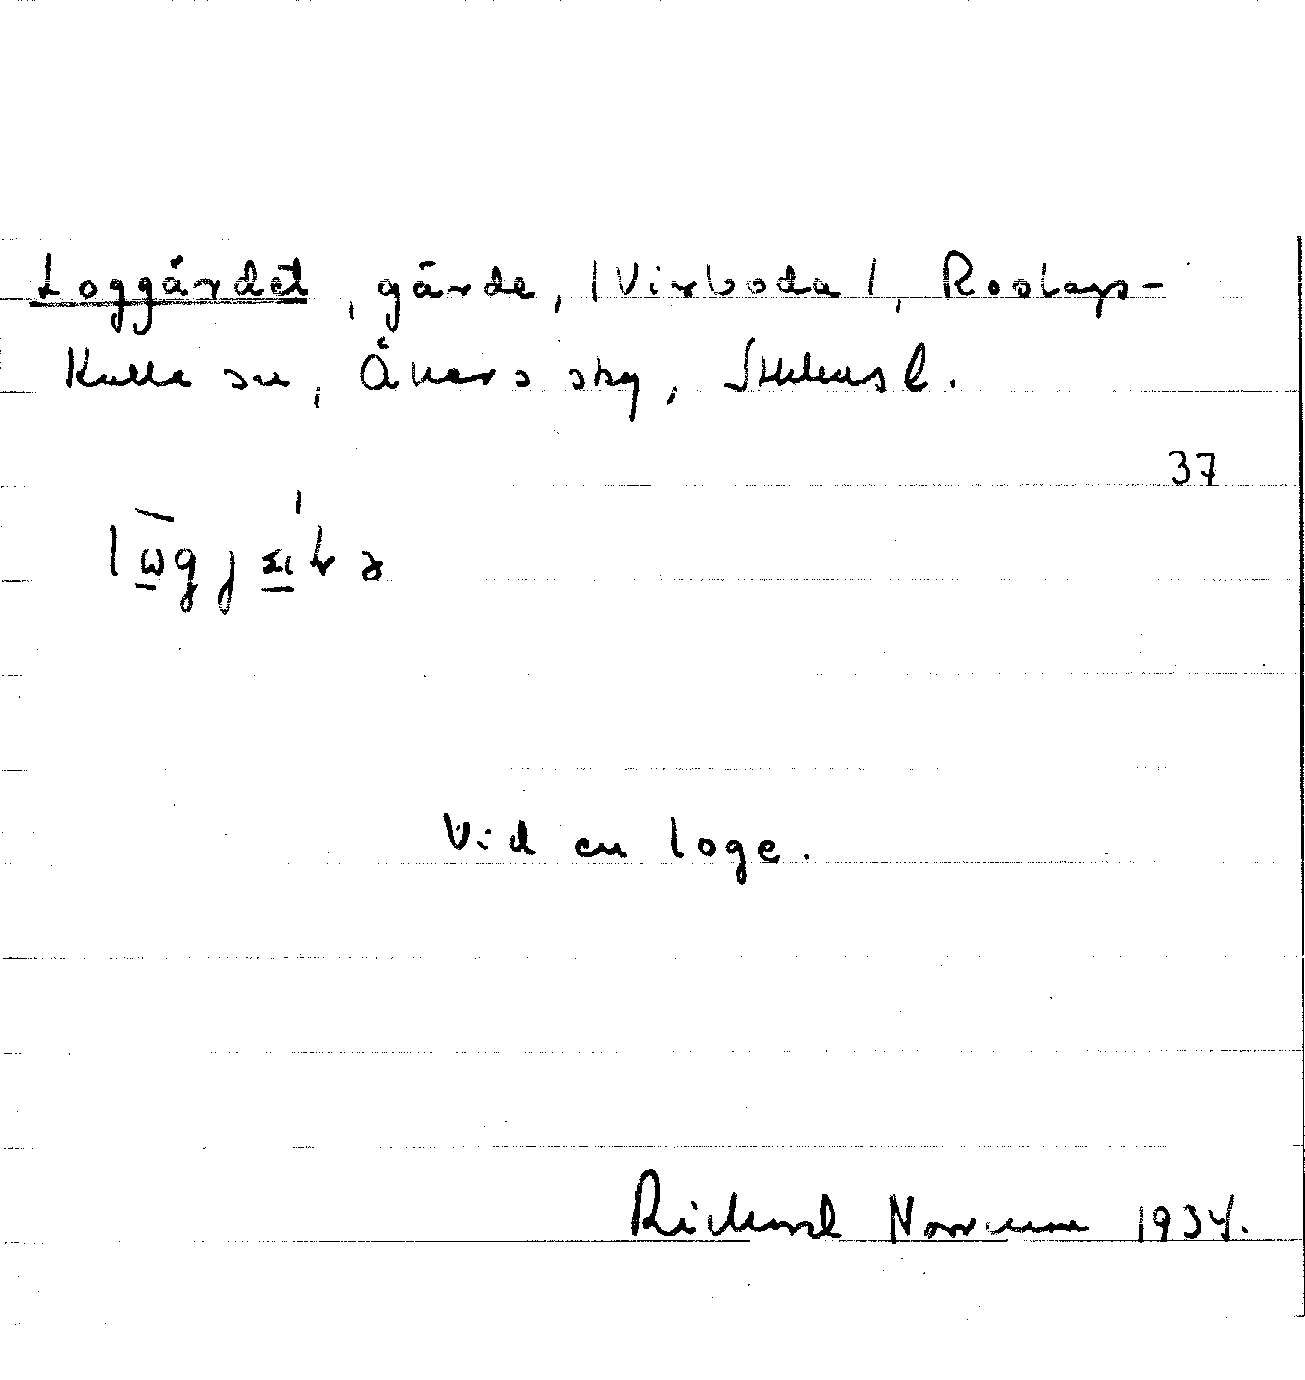 Loggärdet, gärde, /Virboda/, Roslags-
Kulla sn, Åkers sky, Sthlms l.
37
Vid en loge.
Richard Norrman 1934.